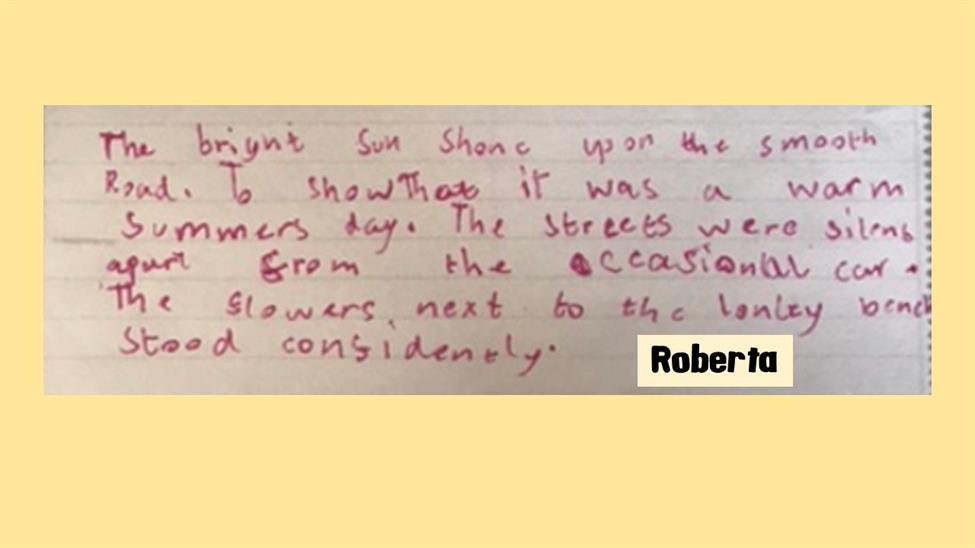 The bright Sun Shone upon the smooth
Road. To show That it was a warm
Summers day. The streets were silent
apart from the occasional car.
The flowers, next to the lonley bench
Stood confidently.
Roberta